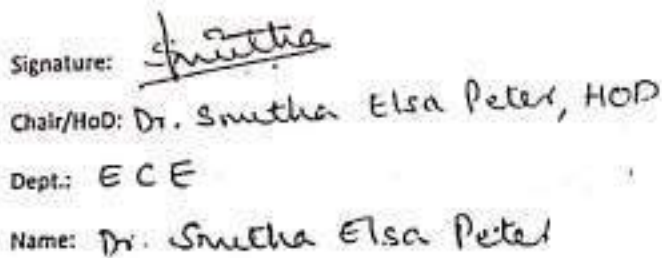 Signature: Smitha
Chair/HoD: Dr. Smitha Elsa Peter, HOD
Dept.: ECE
Name: Dr. Smitha Elsa Peter